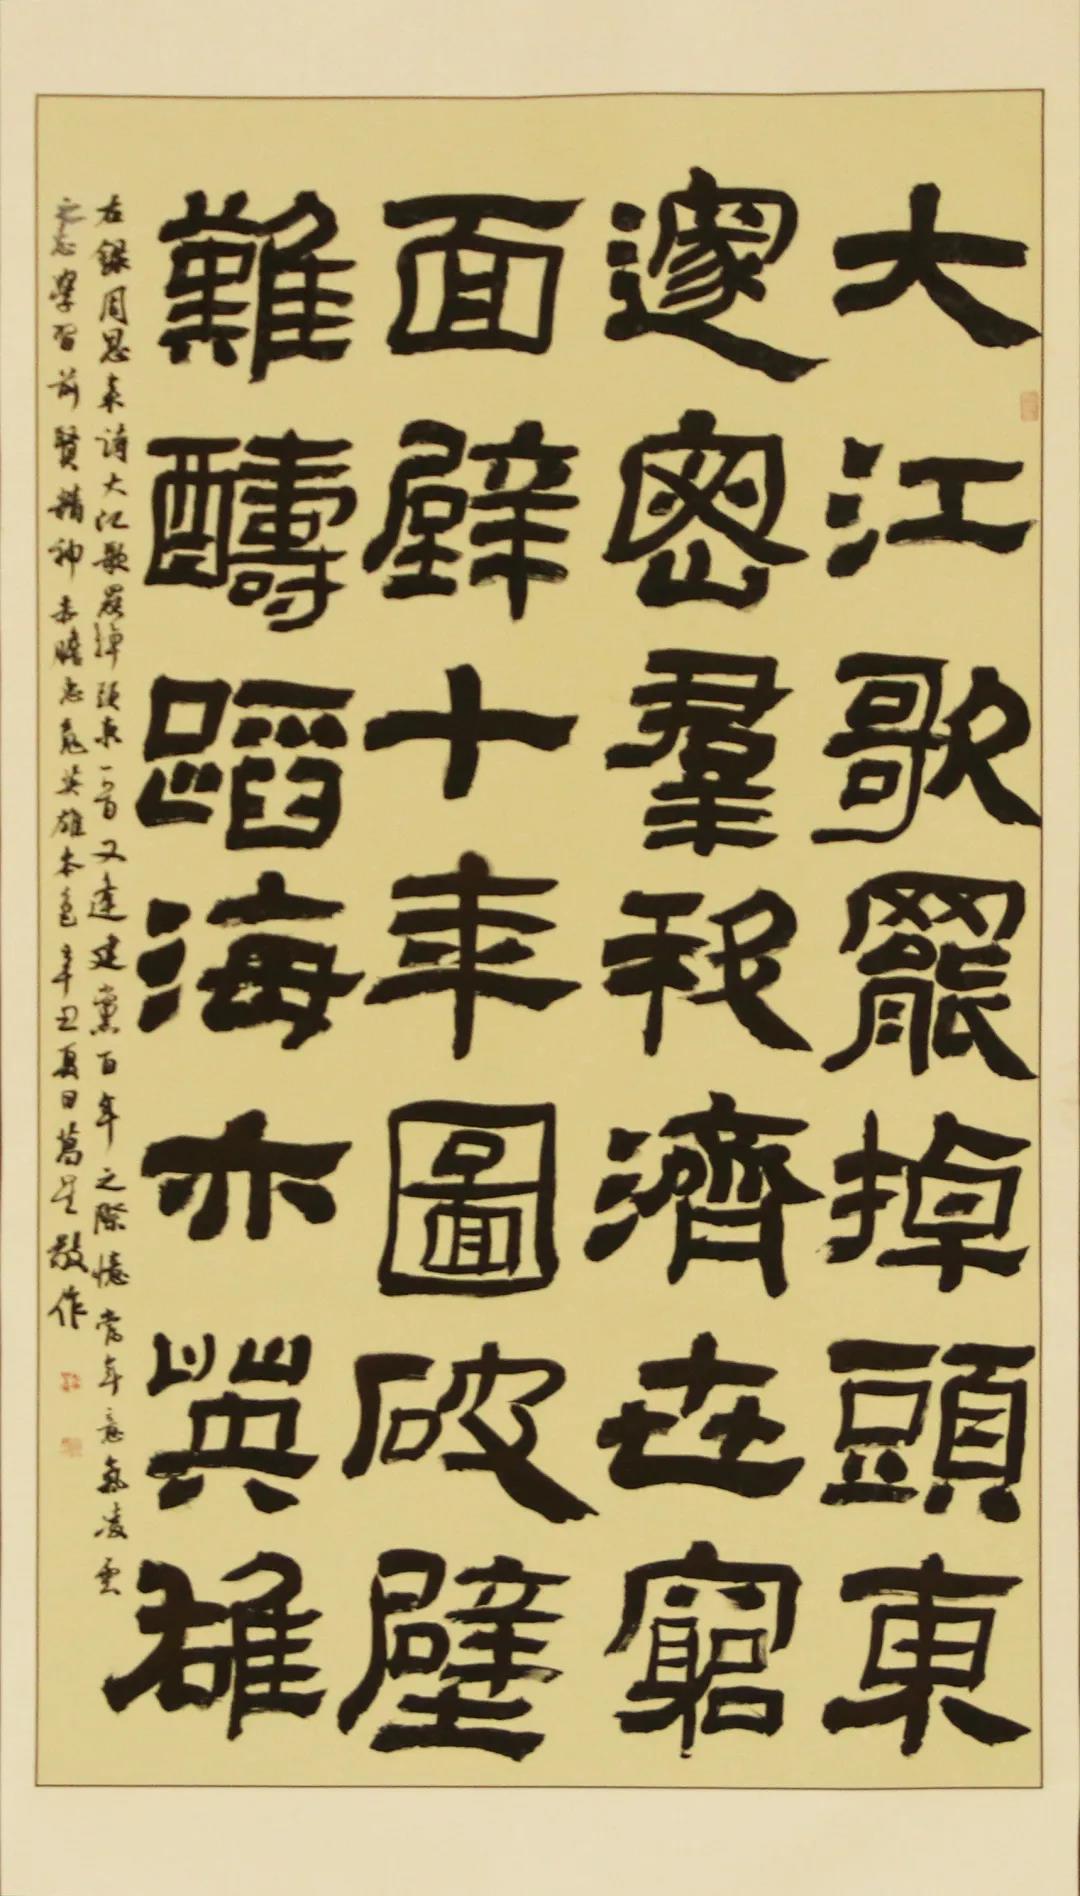 大江歌罷掉頭東
邃密羣移濟世窮
面壁十年圖破壁
難醻蹈海亦英雄
右錄周恩來詩大江歌罷掉頭東一首又逢建黨百年之際憶當年意氣凌雲
之志學習前賢精神赤膽忠魂英雄本色辛丑夏日敬作